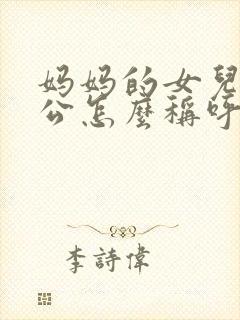 妈妈的女兒
公怎麼稱呼
李詩偉